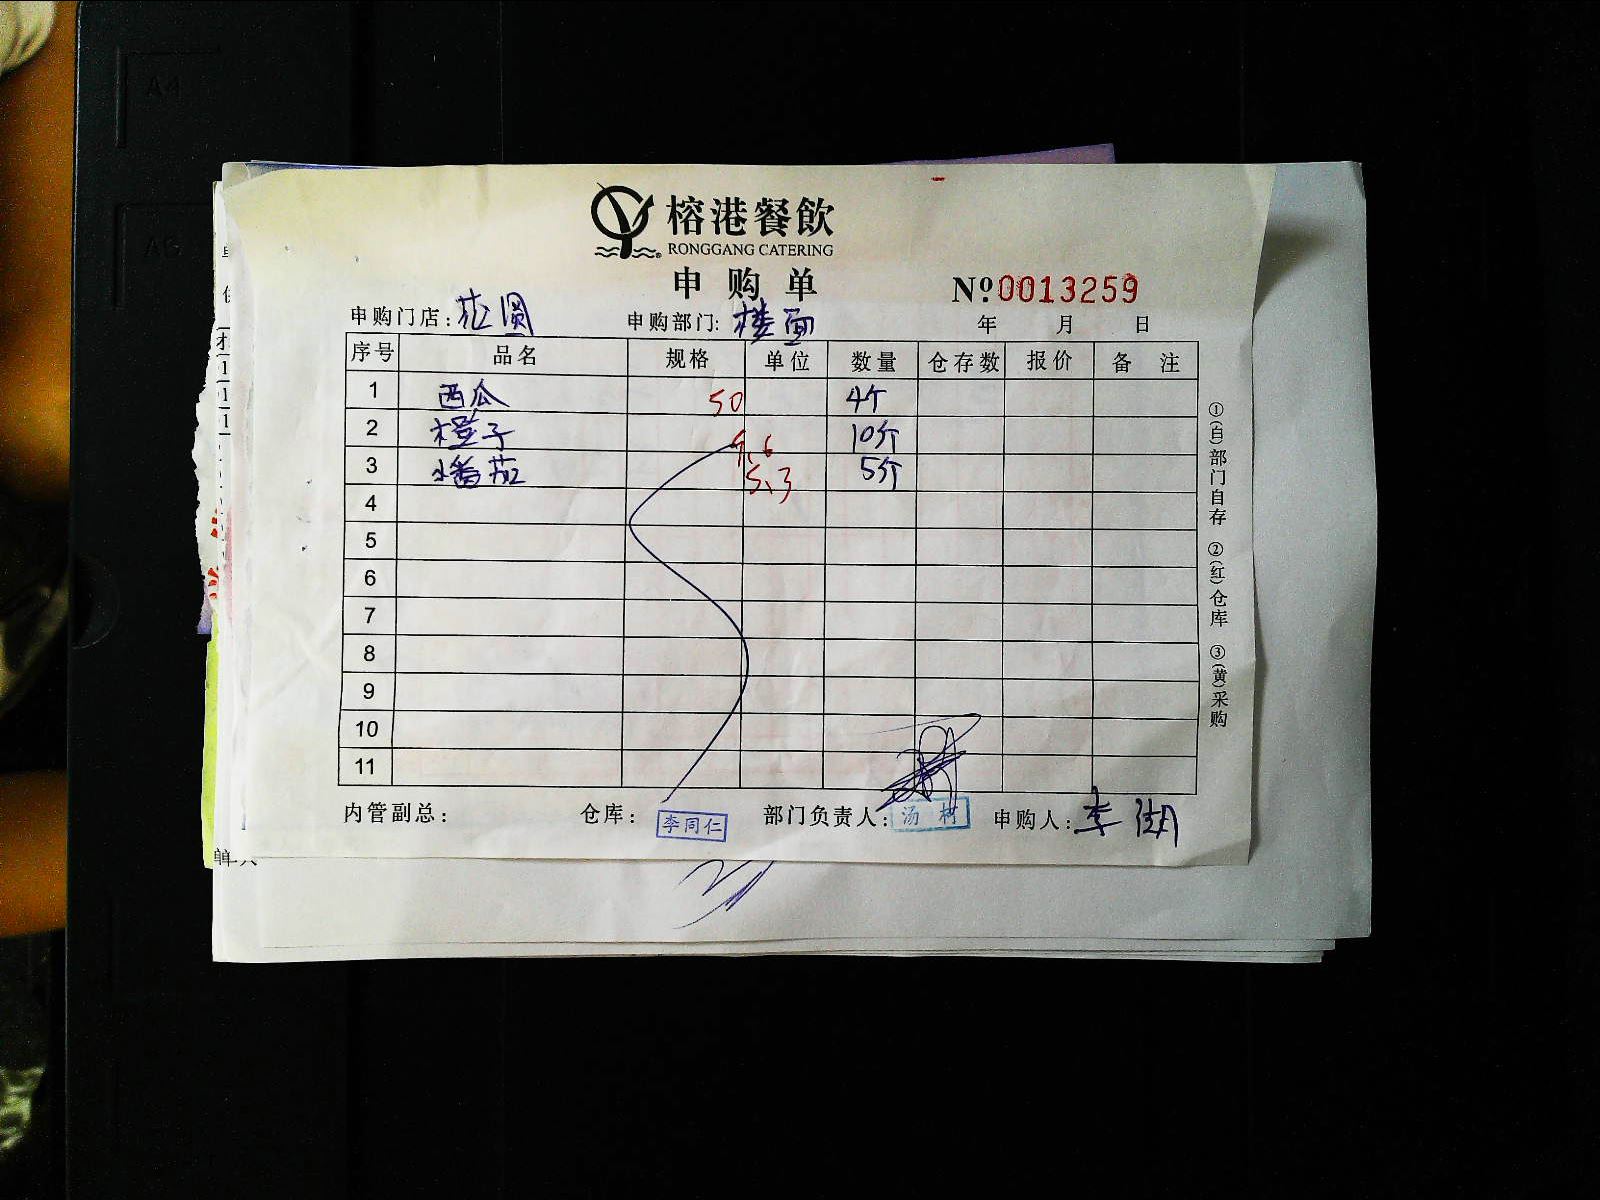 榕港餐飲
RONGGANG CATERING
申购单
№0013259
申购门店： 申购部门：楼面 年 月 日
序号 品名 规格 单位 数量 仓存数 报价 备注
1 西瓜 50 4个
2 橙子 9.6 10个
3 小番茄 5.3 5斤
4
5
6
7
8
9
10
11
内管副总： 仓库：李同仁 部门负责人：汤 申购人：李湖
①(白)部门自存 ②(红)仓库 ③(黄)采购
A4
A5